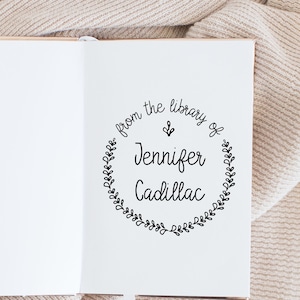 from the library of
Jennifer
Cadillac